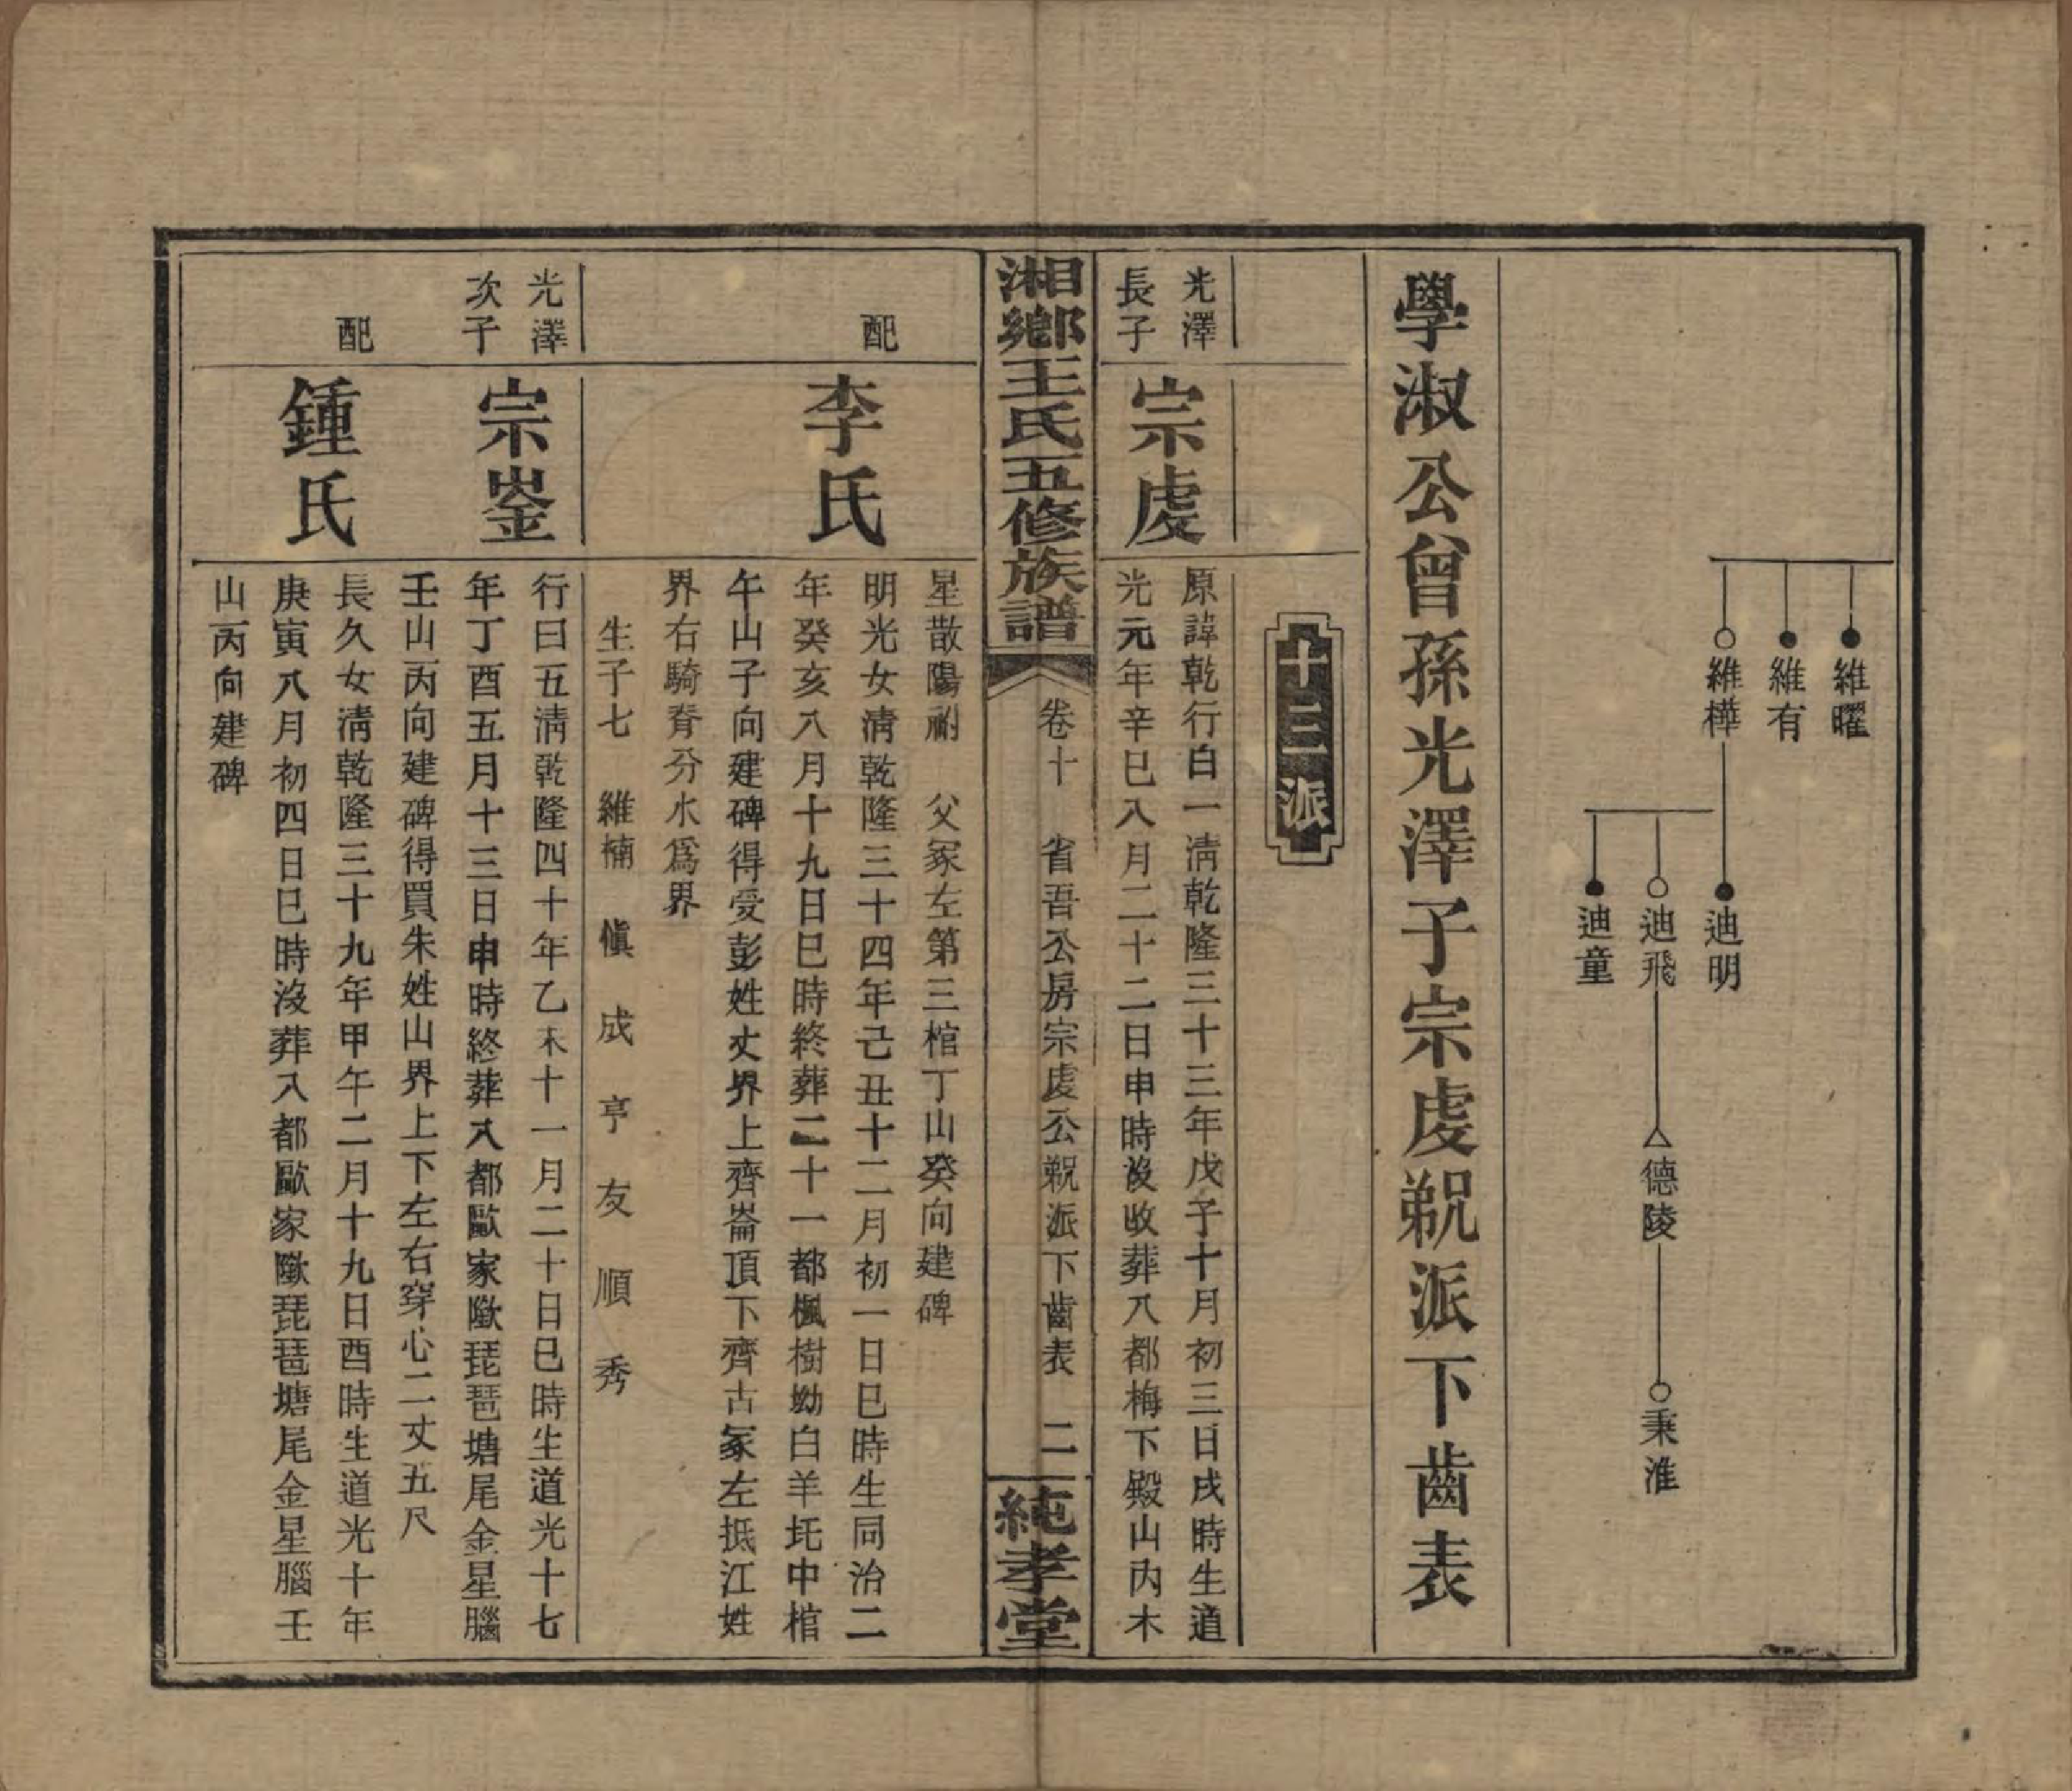 維曜
維有
維樺
迪明
迪飛
迪童
德陵
秉淮
學淑公曾孫光澤子宗虔鵜派下齒表
十三派
光澤
長子
宗虔
原諱乾行白一淸乾隆三十三年戊子十月初三日戌時生道
光元年辛巳八月二十二日申時沒收葬八都梅下殿山內木
湘鄉王氏五修族譜
卷十 省吾公房宗虔公派下齒表 二
純孝堂
星散陽祔 父冢左第三棺丁山癸向建碑
配
李氏
明光女淸乾隆三十四年己丑十二月初一日巳時生同治二
年癸亥八月十九日巳時終葬二十一都楓樹坳白羊圫中棺
午山子向建碑得受彭姓丈界上齊崙頂下齊古冢左抵江姓
界右騎脊分水爲界
生子七 維楠 愼 成 亨 友 順 秀
光澤
次子
宗崟
行曰五淸乾隆四十年乙未十一月二十日巳時生道光十七
年丁酉五月十三日申時終葬八都歐家隞琵琶塘尾金星腦
壬山丙向建碑得買朱姓山界上下左右穿心二丈五尺
配
鍾氏
長久女淸乾隆三十九年甲午二月十九日酉時生道光十年
庚寅八月初四日巳時沒葬八都歐家隞琵琶塘尾金星腦壬
山丙向建碑